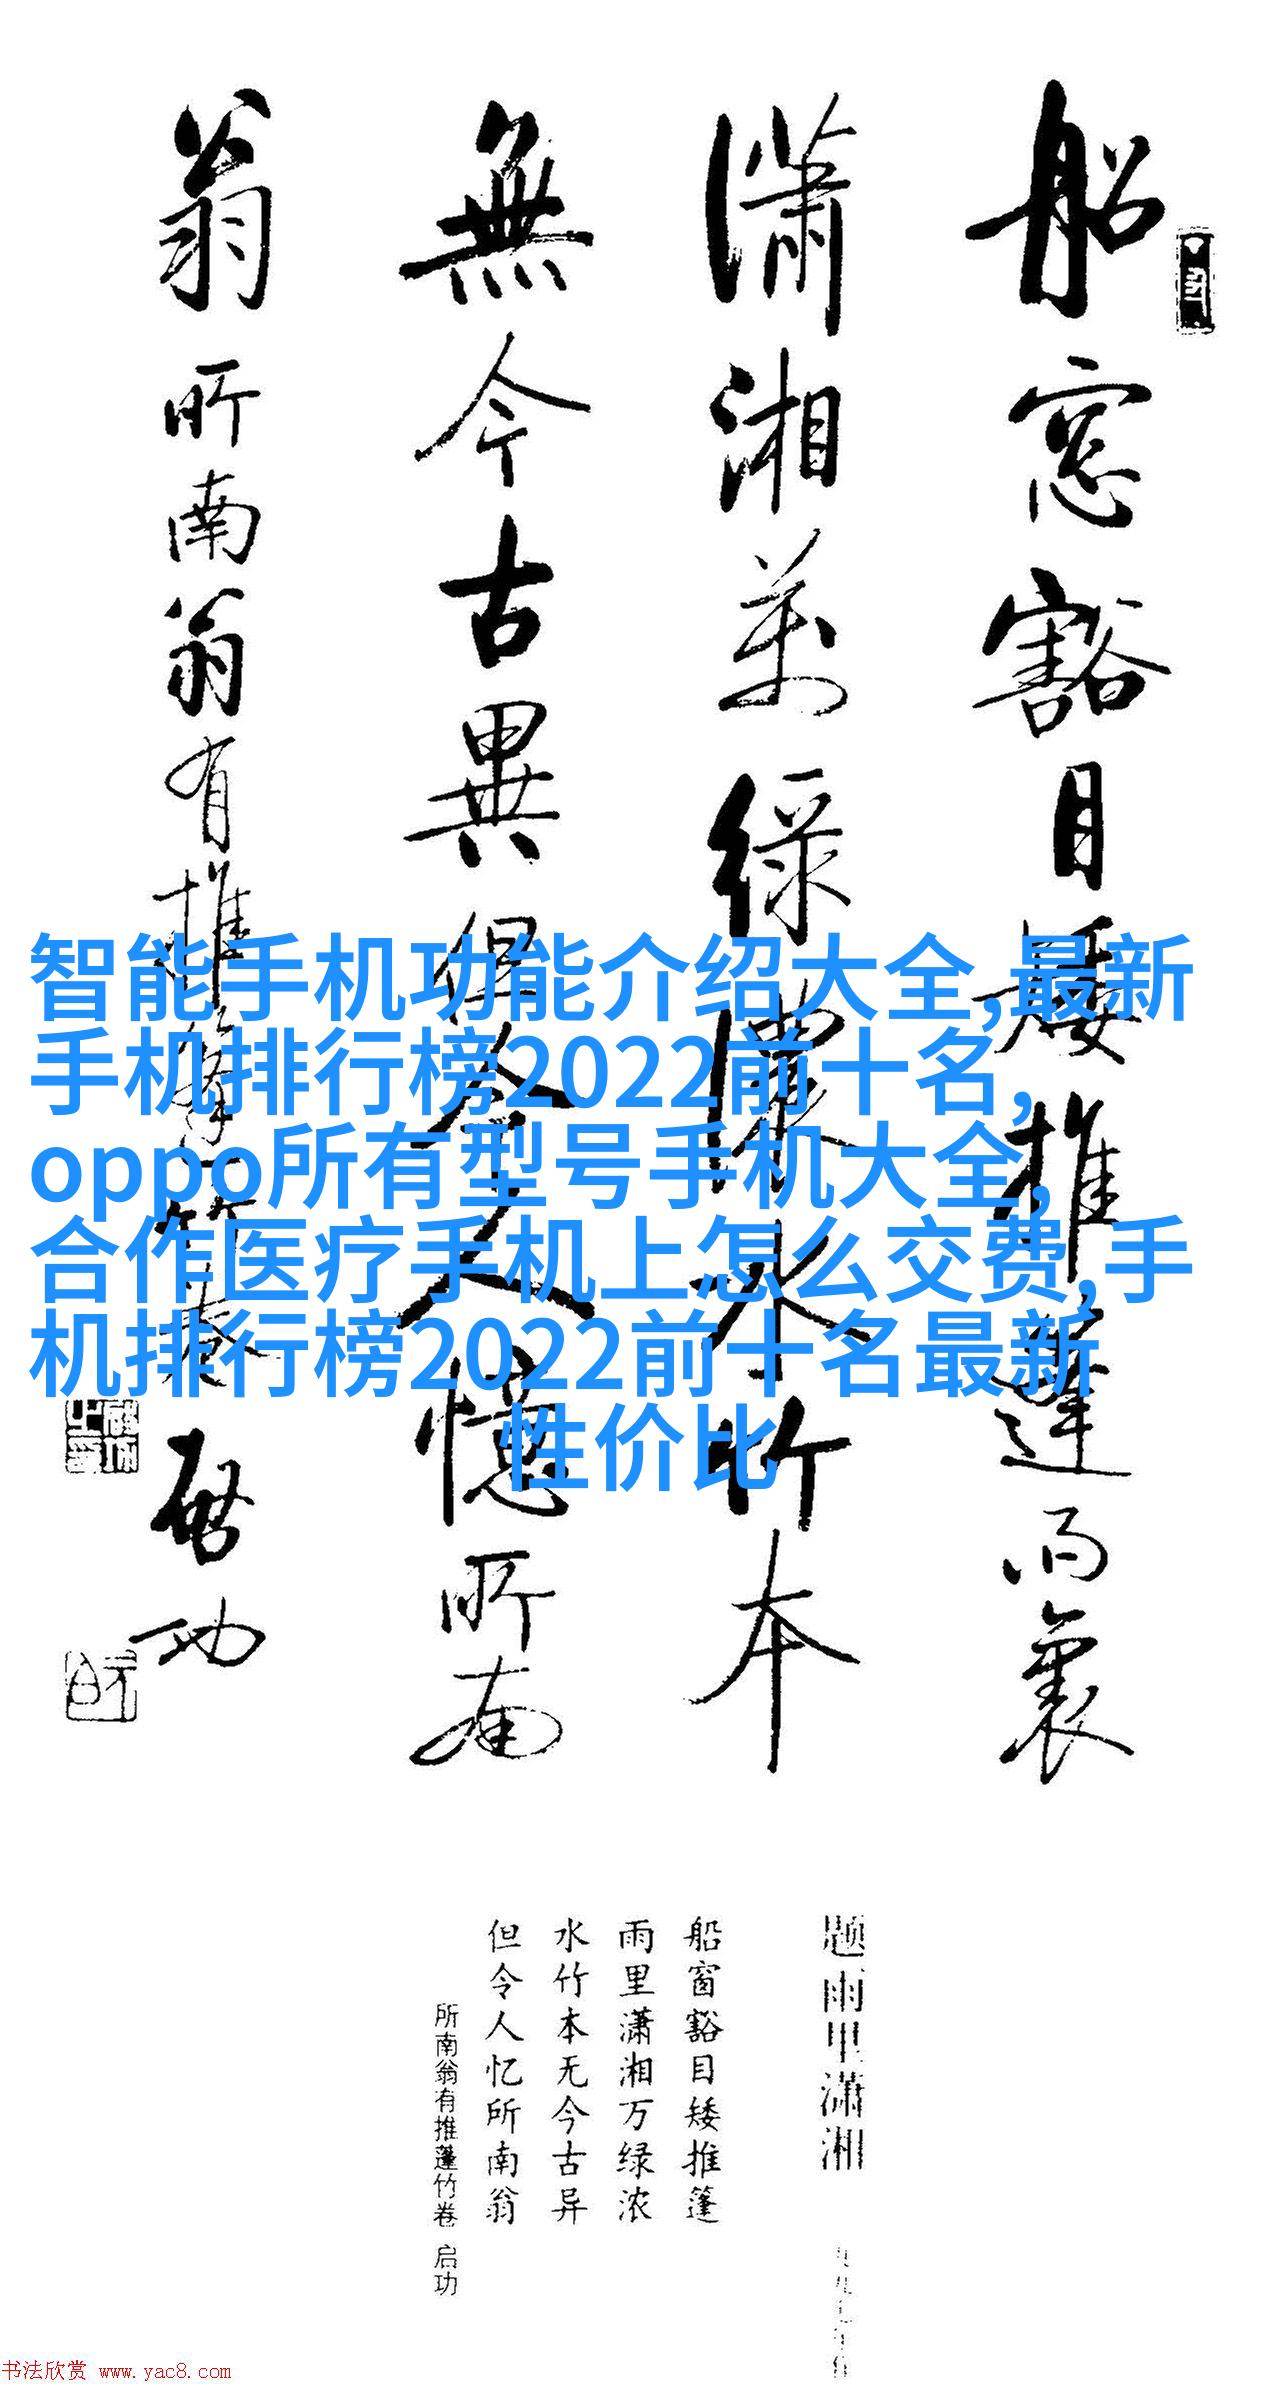 船窓豁目矮推篷雨裏
瀟湘萬綠濃水竹本
無今古異但令人憶所南
翁所南翁有推篷竹卷
启功
智能手机功能介绍大全,最新
手机排行榜2022前十名,
oppo所有型号手机大全,
合作医疗手机上怎么交费,手
机排行榜2022前十名最新
性价比
题雨里潇湘
船窗豁目矮推篷
雨里潇湘万绿浓
水竹本无今古异
但令人忆所南翁
所南翁有推蓬竹卷 启功
书法欣赏 www.yac8.com